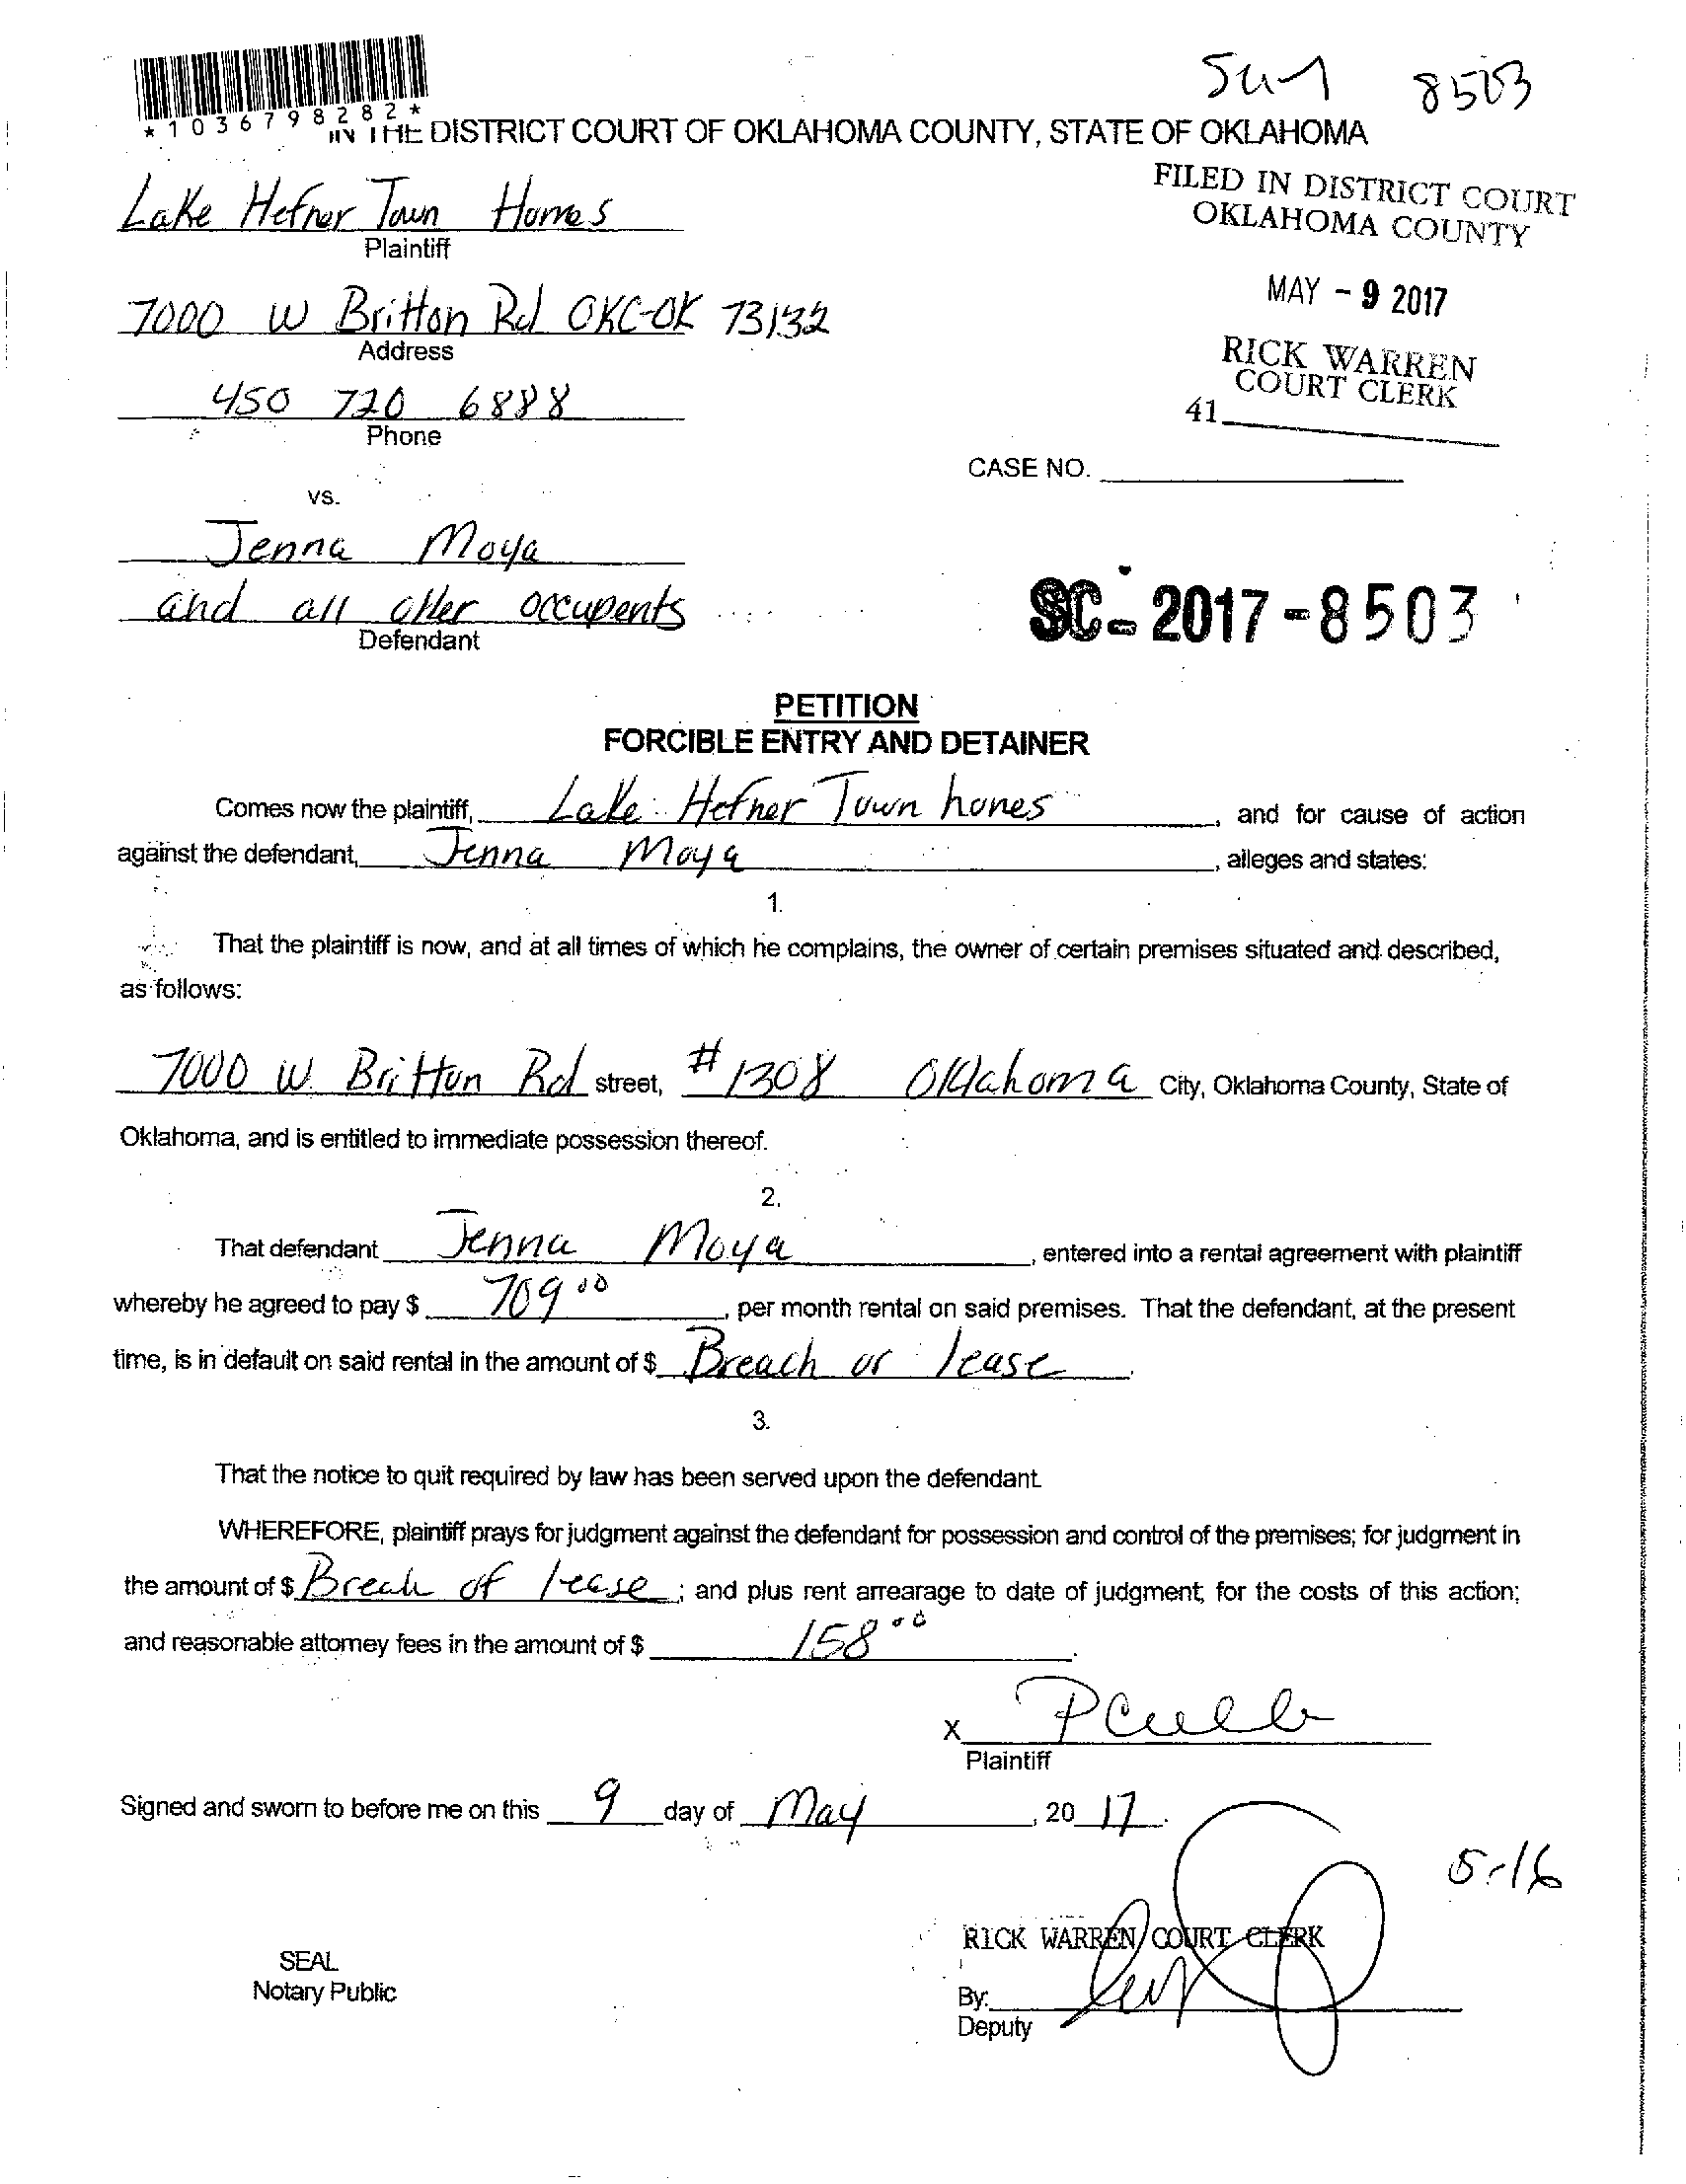 8503
*1036798282*
IN THE DISTRICT COURT OF OKLAHOMA COUNTY, STATE OF OKLAHOMA
FILED IN DISTRICT COURT
OKLAHOMA COUNTY
Lake Hefner Town Homes
Plaintiff
MAY - 9 2017
7000 W Britton Rd OKC-OK 73132
Address
RICK WARREN
COURT CLERK
41
450 720 6888
Phone
CASE NO.
vs.
Jenna Moya
and all other occupents
Defendant
SC-2017-8503
PETITION
FORCIBLE ENTRY AND DETAINER
Comes now the plaintiff, Lake Hefner Town homes, and for cause of action
against the defendant, Jenna Moya, alleges and states:
1.
That the plaintiff is now, and at all times of which he complains, the owner of certain premises situated and described,
as follows:
7000 W. Britton Rd street, #1308 Oklahoma City, Oklahoma County, State of
Oklahoma, and is entitled to immediate possession thereof.
2.
That defendant Jenna Moya, entered into a rental agreement with plaintiff
whereby he agreed to pay $ 709 00, per month rental on said premises. That the defendant, at the present
time, is in default on said rental in the amount of $ Breach of lease.
3.
That the notice to quit required by law has been served upon the defendant.
WHEREFORE, plaintiff prays for judgment against the defendant for possession and control of the premises; for judgment in
the amount of $ Breach of lease; and plus rent arrearage to date of judgment, for the costs of this action;
and reasonable attorney fees in the amount of $ 158 00.
X
Plaintiff
Signed and sworn to before me on this 9 day of May, 20 17.
5-16
RICK WARREN COURT CLERK
SEAL
Notary Public
By:
Deputy